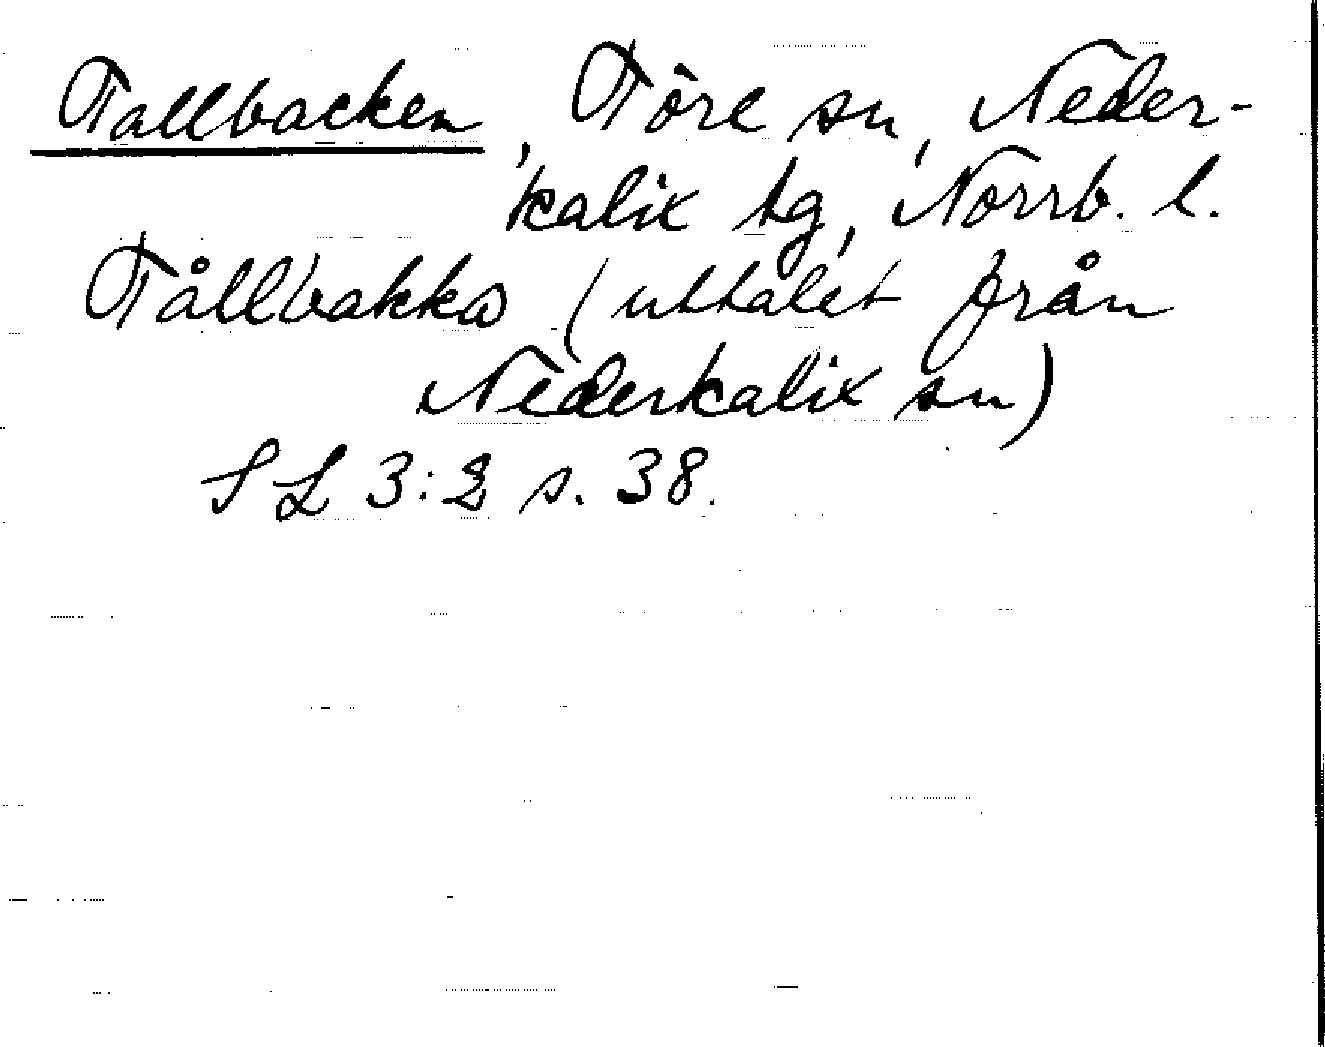 Tallbacken, Töre sn, Neder-
kalix tg, Norrb. l.
Tållbakka (uttalet från
Nederkalix sn)
SL 3:2 s. 38.